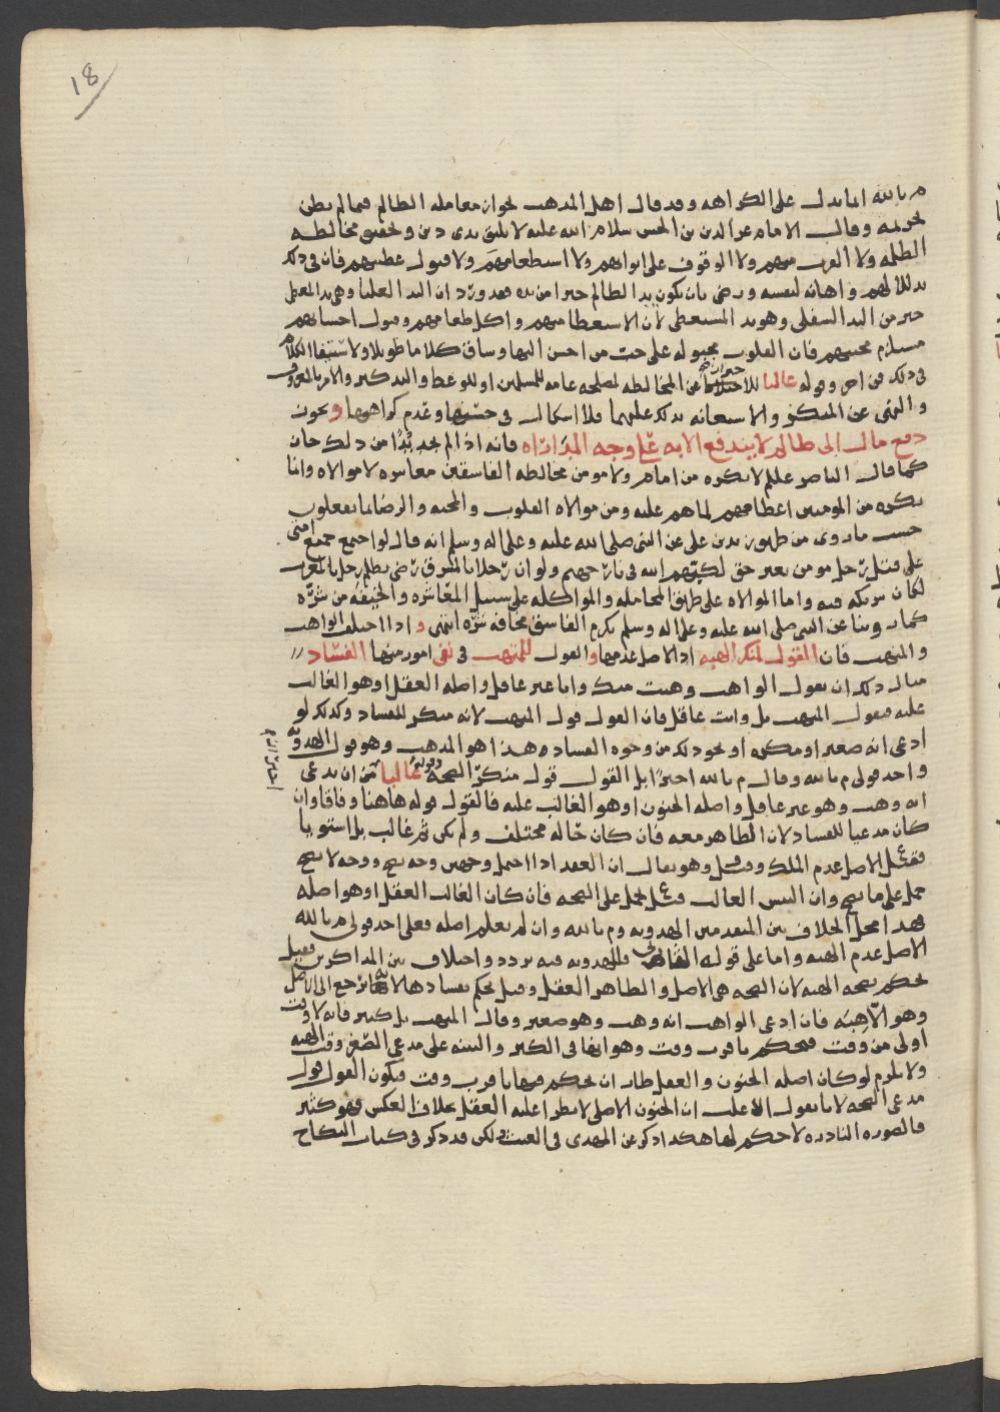 18
م بالله انما يدل على الكراهه وقد قال اهل المذهب بجواز معامله الظالم فيما لم يظن
تحريمه وقال الامام عز الدين بن الحسن سلام الله عليه لا يليق بذى دين وتحقيق مخالطه
الظلمه ولا القرب منهم ولا الوقوف على ابوابهم ولا استطعامهم ولا قبول عطيتهم فان فى ذلك
تذللا لهم واهانه لنفسه ورضى بان تكون يد الظالم خيرا من يده فقد ورد ان اليد العليا وهى يد المعطى
خير من اليد السفلى وهو يد المستعطى لان الاستعطا منهم واكل طعامهم وقبول احسانهم
مستلزم محبتهم فان القلوب مجبوله على حب من احسن اليها وساق كلاما طويلا ولاستيفا الكلام
فى ذلك فن اخر وقوله غالبا للاحتراز عن المخالطه لمصلحه عامه للمسلمين او للوعظ والتذكير والامر بالمعروف
والنهى عن المنكر والاستعانه بذلك عليهما فلا اشكال فى حسنها وعدم كراهتها و يجوز
دفع مال الى ظالم لا يندفع الا به على وجه المداراه فانه اذا لم يجد بدا من ذلك جاز
كما قال الناصر عللم لا نكره من امام ولا مومن مخالطه الفاسقين معاشره لا موالاه وانما
نكره من المومنين اعظامهم لما هم عليه ومن موالاه القلوب والمحبه والرضا بما يفعلون
حسب ما روى من طريق زيد بن على عن النبى صلى الله عليه وعلى اله وسلم انه قال لو اجتمع جميع امتى
على قتل رجل مومن بغير حق لكبهم الله فى نار جهنم ولو ان رجلا بالمشرق رضى بظلم رجل بالمغرب
لكان شريكه فيه واما الموالاه على طريق المجامله والمواكله على سبيل المعاشره والخيفه من شره
كما روينا عن النبى صلى الله عليه وعلى اله وسلم يكرم الفاسق مخافه شره انتهى و اذا اختلف الواهب
والمتهب فان القول لمنكر الهبه اذ الاصل عدمها و القول للمتهب فى نفى امور منها الفساد
مثال ذلك ان يقول الواهب وهبت منك وانا غير عاقل واصله العقل او هو الغالب
عليه فيقول المتهب بل وانت عاقل فان القول قول المتهب لانه منكر للفساد وكذلك لو
ادعى انه صغير او مكره او نحو ذلك من وجوه الفساد وهذا هو المذهب وهو قول الهدويه
واحد قولى م بالله وقال م بالله اخيرا بل القول قول منكر الصحه وقوله غالبا من ان يدعى
انه وهب وهو غير عاقل واصله الجنون او هو الغالب عليه فالقول قوله هاهنا وفاقا وان
كان مدعيا للفساد لان الظاهر معه فان كان حاله مختلف ولم يكن ثم غالب بل استويا
فقيل الاصل عدم الملك وقيل وهو يقال ان العقد اذا احتمل وجهين وجه يصح ووجه لا يصح
حمل على ما يصح وان التبس الغالب قيل حمل على الصحه فان كان الغالب العقل او هو اصله
فهذا محل الخلاف بين المتقدمين الهدويه وم بالله وان لم يعلم اصله فعلى احد قولى م بالله
الاصل عدم الهبه واما على قوله الثانى وللهدويه فيه تردد واختلاف بين المذاكرين فقيل
يحكم بصحه الهبه لان الصحه هى الاصل والظاهر العقل وقيل يحكم بفسادها لانا نرجع الى الاصل
وهو الا هبه فان ادعى الواهب انه وهب وهو صغير وقال المتهب بل كبير فانه لا وقت
اولى من وقت فيحكم باقرب وقت وهو ايضا فى الكبر والبينه على مدعى الصغر وقت الهبه
ولا يلزم لو كان اصله الجنون والعقل طار ان نحكم فيها باقرب وقت فيكون القول قول
مدعى الصحه لانا نقول الاغلب ان الجنون الاصلى لا يطرا عليه العقل بخلاف العكس فهو كثير
فالصوره النادره لا حكم لها هكذا ذكر عن المهدى فى الغيث ولكن قد ذكر فى كتاب النكاح